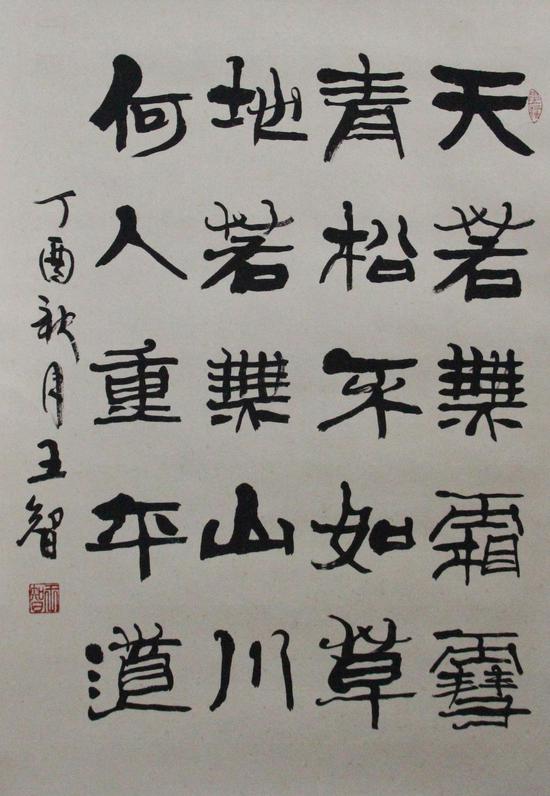 天若無霜雪
青松不如草
地若無山川
何人重平道
丁酉秋月王智